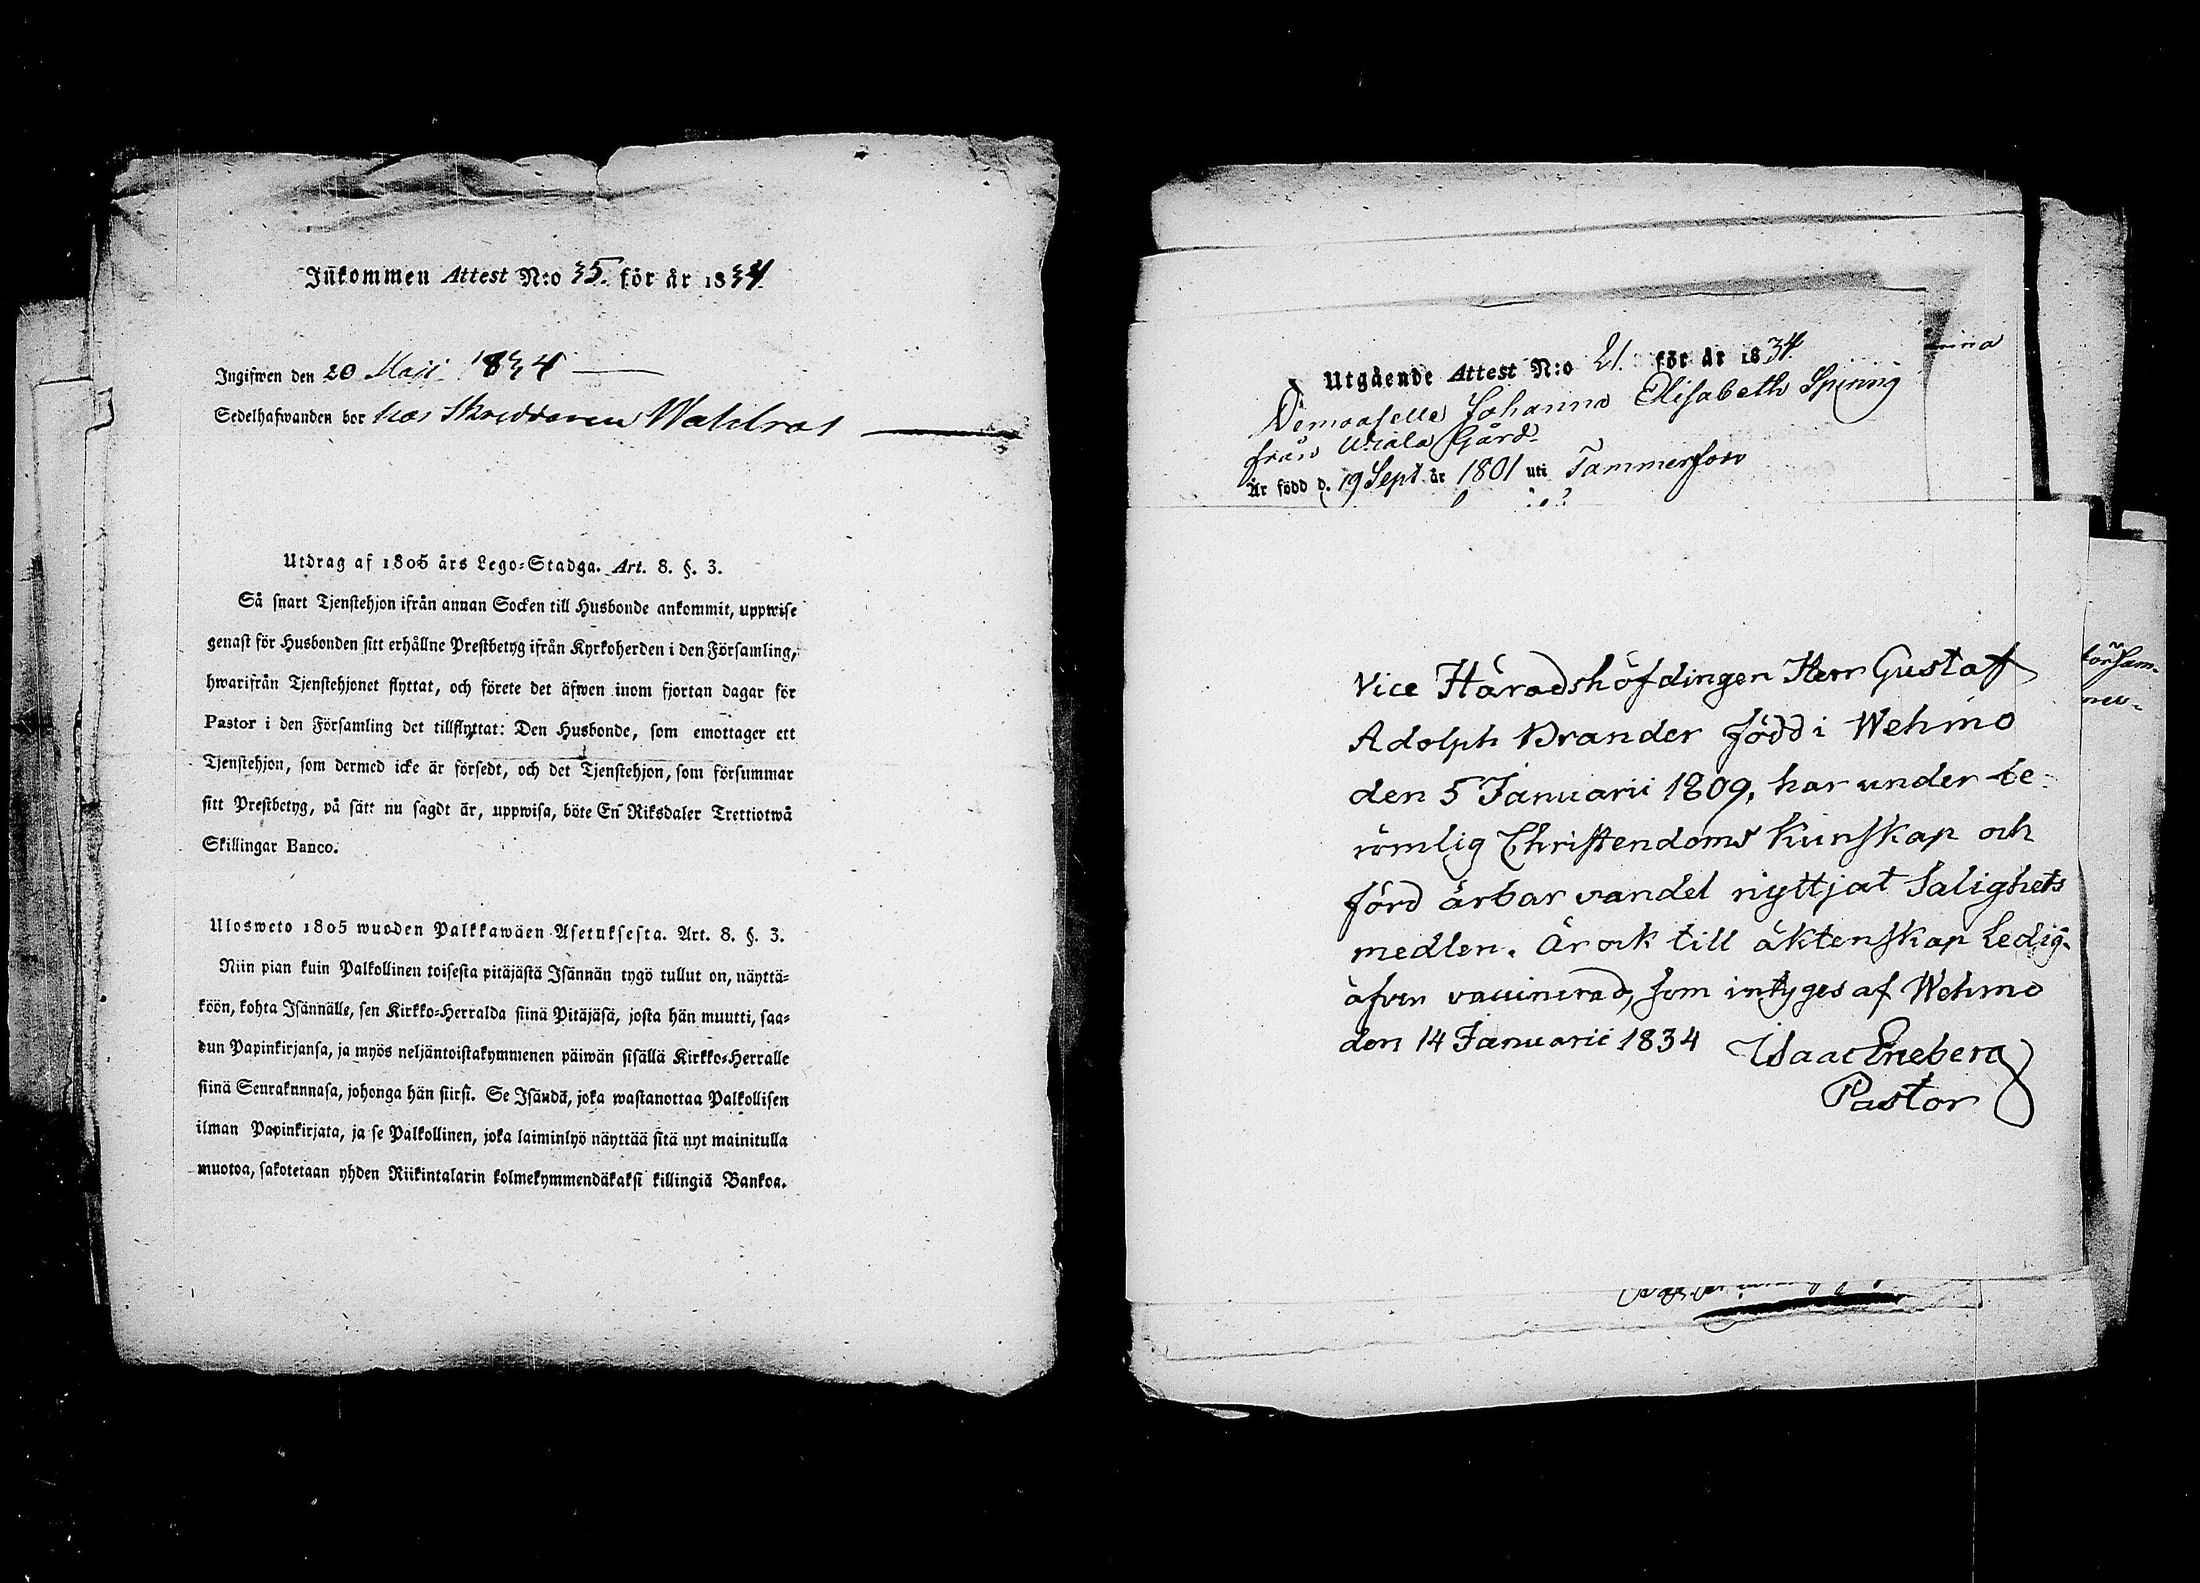 Inkommen Attest N:o 35. för år 1834
Ingifwen den 20 Maji 1834
Sedelhafwanden bor hos Skreddaren Wahlros
Utdrag af 1805 års Lego-Stadga. Art. 8. §. 3.
Så snart Tjenstehjon ifrån annan Socken till Husbonde ankommit, uppwise
genast för Husbonden sitt erhållne Prestbetyg ifrån Kyrkoherden i den Församling,
hwarifrån Tjenstehjonet flyttat, och förete det äfwen inom fjortan dagar för
Pastor i den Församling det tillflyttat: Den Husbonde, som emottager ett
Tjenstehjon, som dermed icke är försedt, och det Tjenstehjon, som försummar
sitt Prestbetyg, på sätt nu sagdt är, uppwisa, böte En Riksdaler Trettiotwå
Skillingar Banco.
Ulosweto 1805 wuoden Palkkawäen Asetuksesta. Art. 8. §. 3.
Niin pian kuin Palkollinen toisesta pitäjästä Isännän tygö tullut on, näyttä-
köön, kohta Isännälle, sen Kirkko-Herralda siinä Pitäjäsä, josta hän muutti, saa-
dun Papinkirjansa, ja myös neljäntoistakymmenen päiwän sisällä Kirkko-Herralle
siinä Seurakunnasa, johonga hän siirsi. Se Isändä, joka wastanottaa Palkollisen
ilman Papinkirjata, ja se Palkollinen, joka laiminlyö näyttää sitä nyt mainitulla
muotoa, sakotetaan yhden Riikintalarin kolmekymmendäkaksi killingiä Bankoa.
Utgående Attest N:o 21. för år 1834.
Demoaselle Johanna Elisabeth Spinnig
från Wiala Gård
Är född d. 19 Sept. år 1801 uti Tammerfors
Vice Häradshöfdingen Herr Gustaf
Adolph Brander född i Wehmo
den 5 Januarii 1809, har under be-
römlig Christendoms Kunskap och
förd ärbar vandel nyttjat Salighets
medlen. Är ock till äktenskap Ledig-
äfven vaccinerad, som intyges af Wehmo
den 14 Januarii 1834 Isaac Eneberg
Pastor
församm-